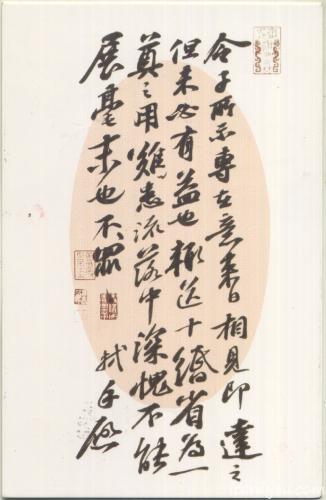 令子所示專在意来日相見即達之
但未必有益也輒送十緡省為一
奠之用難患流落中深愧不能
展毫末也不罪 軾手啟